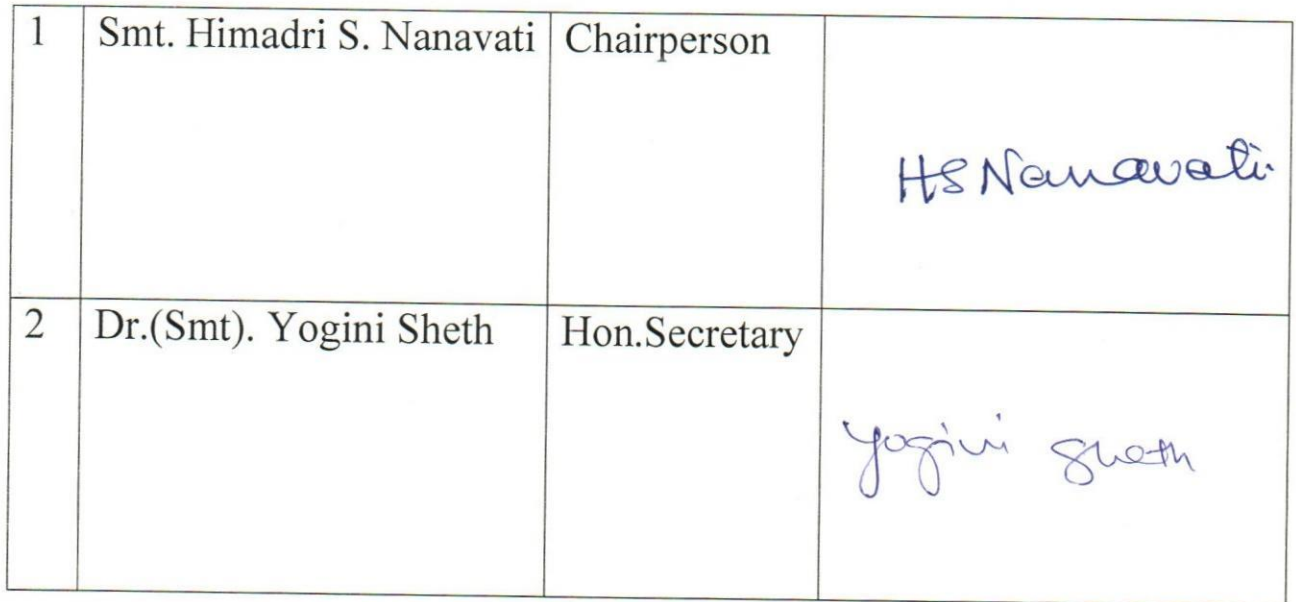 1 Smt. Himadri S. Nanavati Chairperson
HS Nanavati
2 Dr.(Smt). Yogini Sheth Hon.Secretary
Yogini Sheth